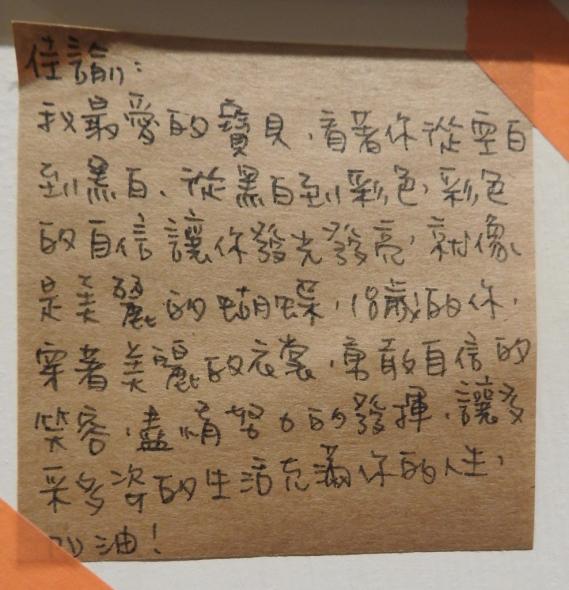 佳諭:
我最愛的寶貝,看著你從空白
到黑白、從黑白到彩色,彩色
的自信讓你發光發亮,就像
是美麗的蝴蝶,18歲的你,
穿著美麗的衣裳,勇敢自信的
笑容,盡情努力的發揮,讓多
采多姿的生活充滿你的人生,
加油!